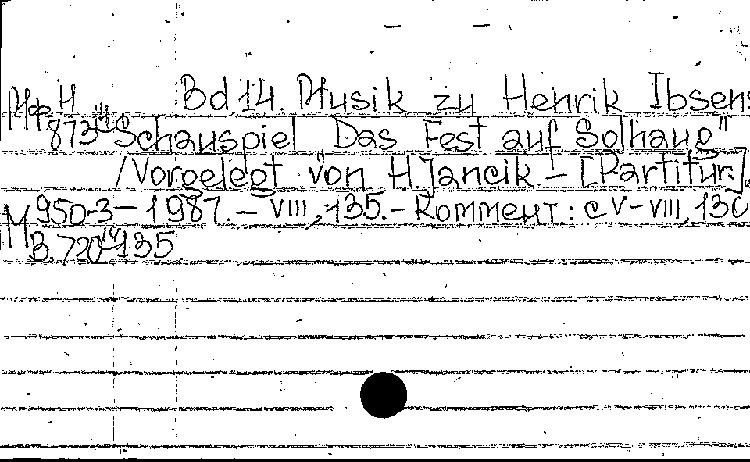 Bd.14. Musik zu Henrik Ibsens
Мф Н 873 Schauspiel "Das Fest auf Solhaug"
/Vorgelegt von H. Jancik. - [Partitur].
М 950-3 - 1987. - VIII, 135. - Коммент: с V-VIII, 130
135